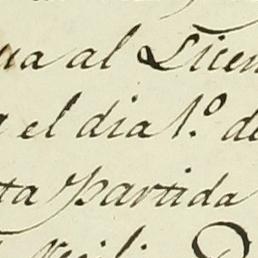 ua al Licen
el dia 1.º de
ta partida